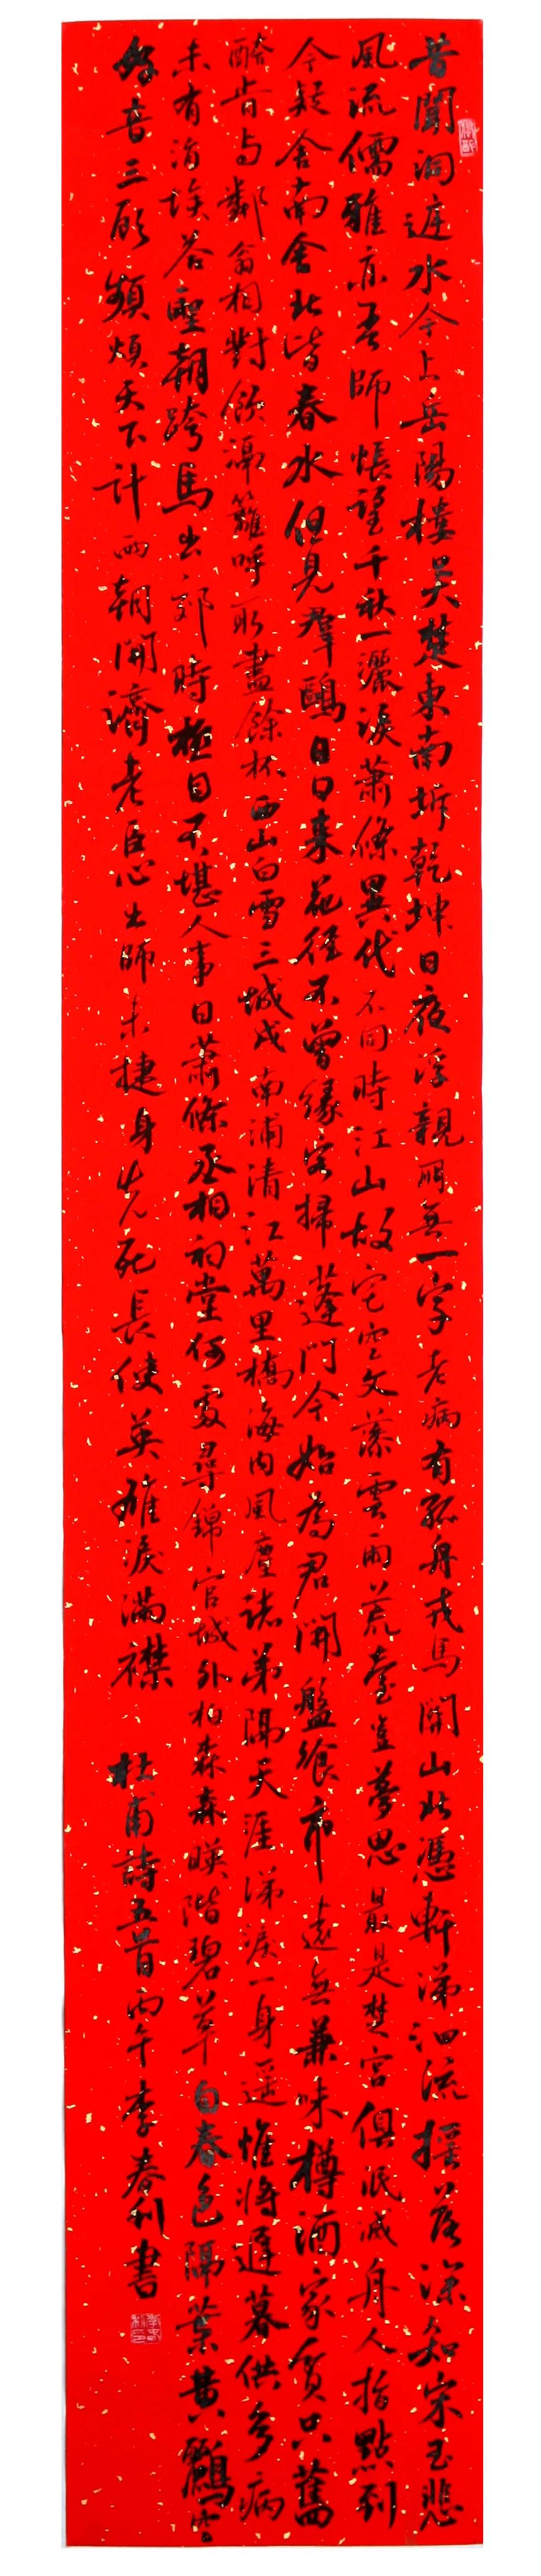 昔聞洞庭水今上岳陽樓吳楚東南坼乾坤日夜浮親朋無一字老病有孤舟戎馬關山北憑軒涕泗流搖落深知宋玉悲
風流儒雅亦吾師悵望千秋一灑淚蕭條異代不同時江山故宅空文藻雲雨荒臺豈夢思最是楚宮俱泯滅舟人指點到
今疑舍南舍北皆春水但見群鷗日日來花徑不曾緣客掃蓬門今始為君開盤飧市遠無兼味樽酒家貧只舊
醅肯與鄰翁相對飲隔籬呼取盡餘杯西山白雪三城戍南浦清江萬里橋海內風塵諸弟隔天涯涕淚一身遙惟將遲暮供多病
未有涓埃答聖朝跨馬出郊時極目不堪人事日蕭條丞相祠堂何處尋錦官城外柏森森映階碧草自春色隔葉黃鸝空
好音三顧頻煩天下計兩朝開濟老臣心出師未捷身先死長使英雄淚滿襟 杜甫詩五首丙午李春利書